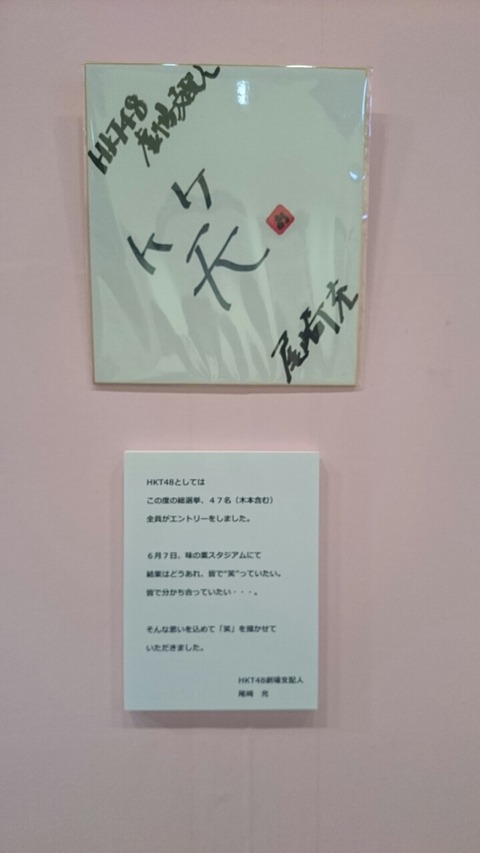 HKT48
劇場支配人
笑
尾崎充
HKT48としては
この度の総選挙、47名（木本含む）
全員がエントリーをしました。
6月7日、味の素スタジアムにて
結果はどうあれ、皆で"笑"っていたい。
皆で分かち合っていたい・・・。
そんな思いを込めて「笑」を描かせて
いただきました。
HKT48劇場支配人
尾崎　充